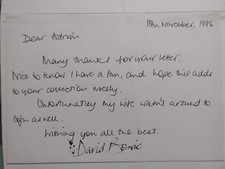 11th November, 1996
Dear Adrian
Many thanks for your letter.
Nice to know I have a fan, and hope this adds
to your collection nicely.
Unfortunately my wife wasn't around to
sign as well.
Wishing you all the best.
David Bowie